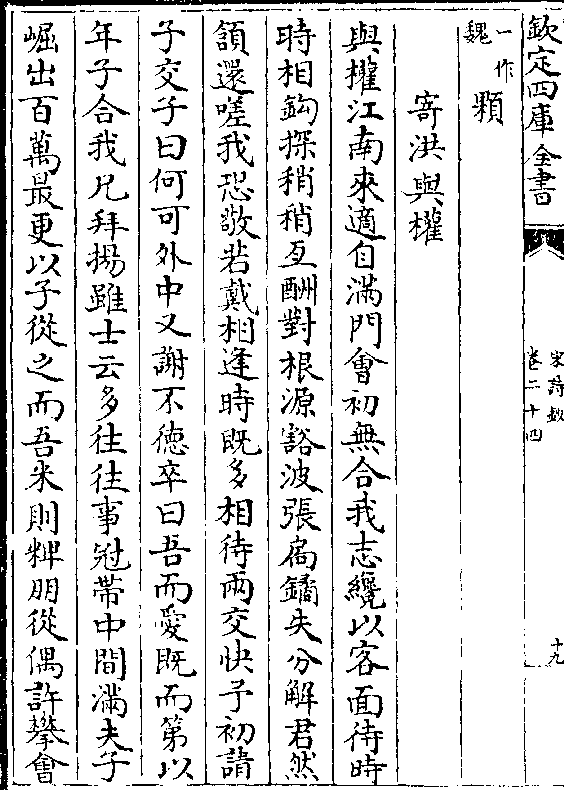 欽定四庫全書
宋詩鈔
卷二十四
十九
一作
魏
顆
寄洪與權
與權江南來適自滿門會初無合我志纔以客面待時
時相鈎探稍稍互酬對根源豁波張扄鐍失分解君然
頷還嗟我恐敬若戴相逢時既多相待兩交快子初請
子交子曰何可外中又謝不德卒曰吾而愛既而第以
年子合我凡拜揚雖士云多往往事冠帶中間滿夫子
崛出百萬最更以子從之而吾米則粺朋從偶許攀會